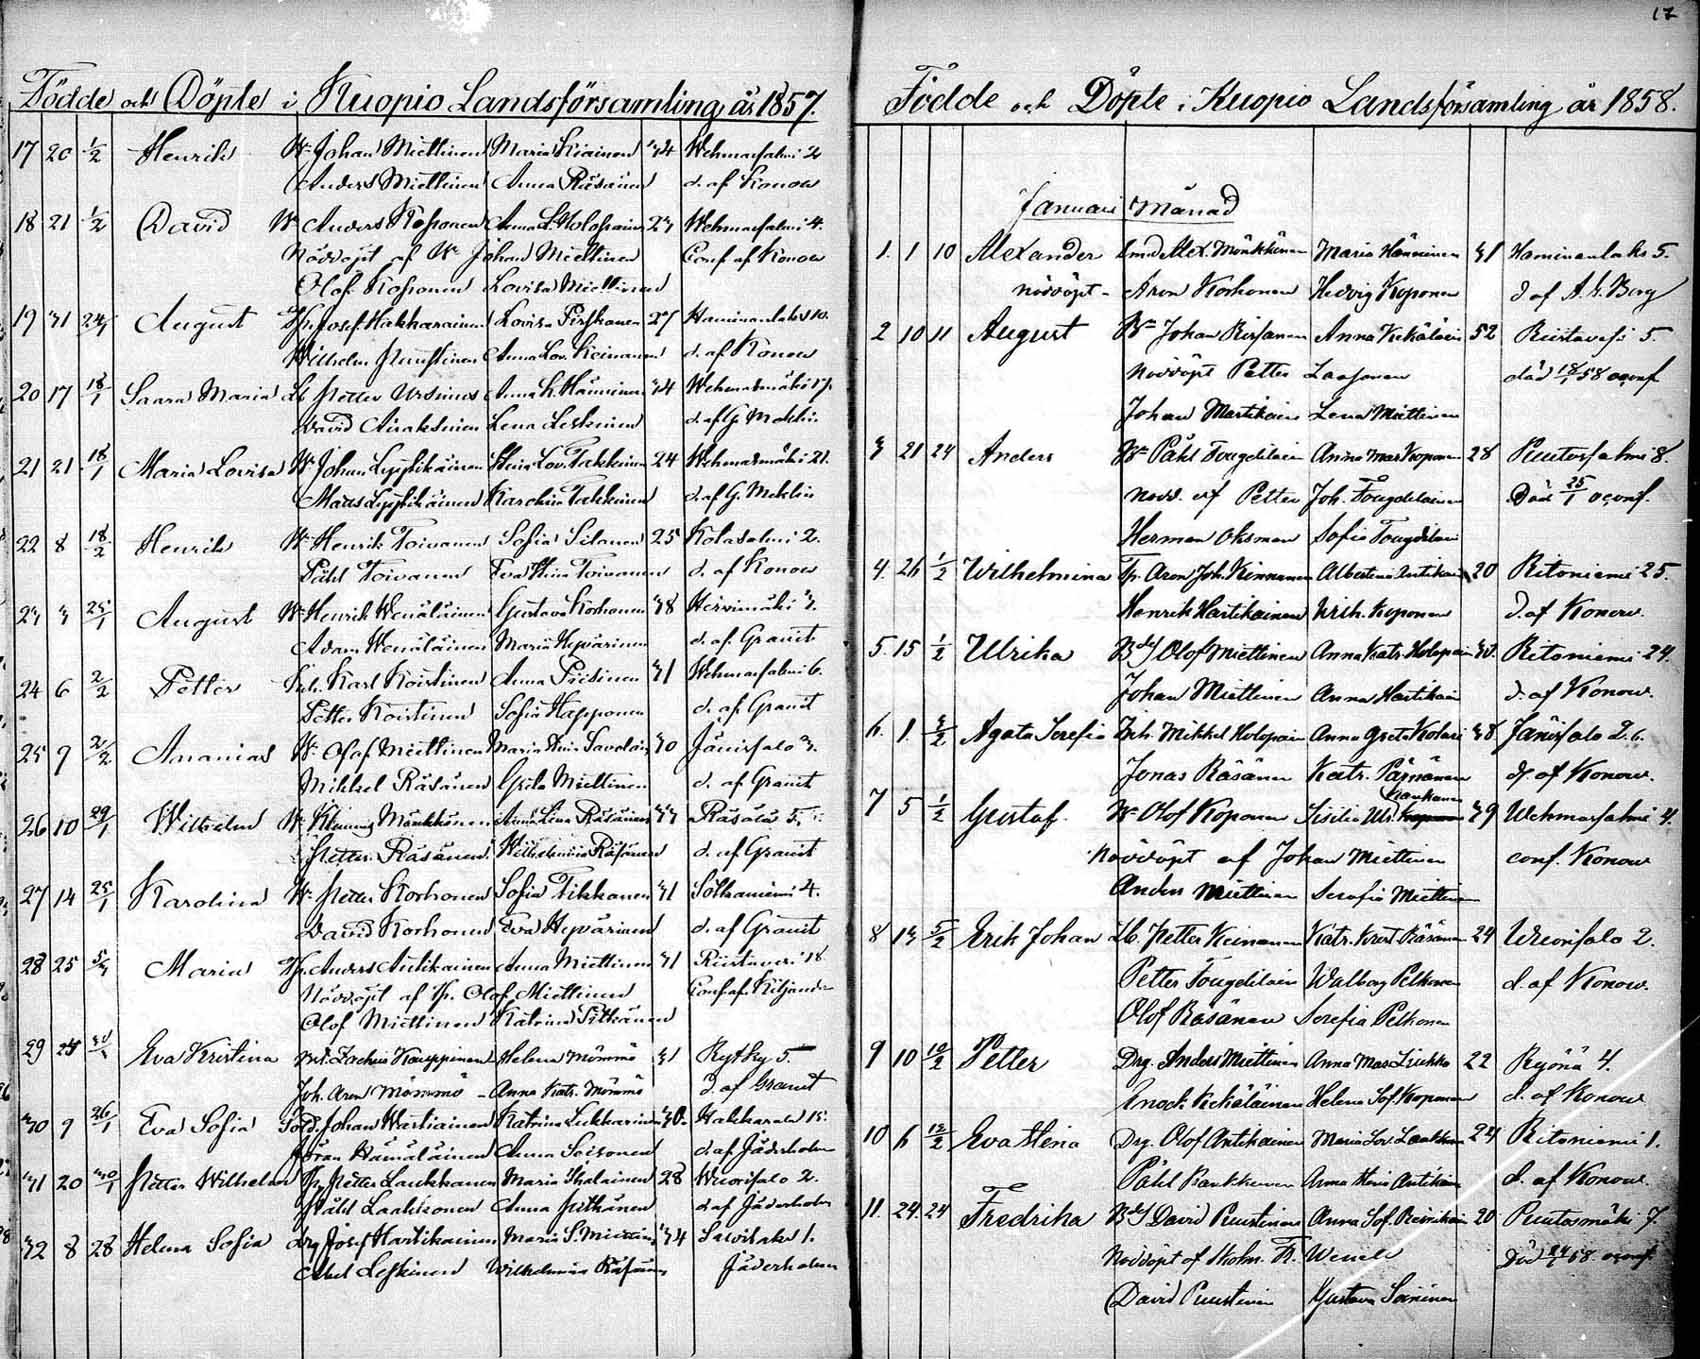 Födde och Döpte i Kuopio Landsförsamling år 1857.
17 20 1/2 Henrik Johan Miettinen Maria Kiainen 34 Wehmasalmi 2
Anders Miettinen Anna Räsänen d. af Konow
18 21 1/2 David Anders Koponen Anna L. Holopain Wehmasalmi 4.
Nöddöpt af Johan Miettinen Conf af Konow
Olof Koponen Lovisa Miettinen
19 31 August Josef Hakkarainen Lovisa 27 Haminanlaks 10.
Wilhelm Anna Lov. Keinanen d. af Konow
20 17 18/1 Saara Maria Lb Petter Ursinus Anna L. Hänninen 34 Wehmasmäki 17.
David Airaksinen Lena Leskinen d. af G. Mehlin
21 21 18/1 Maria Lovisa Johan Lyytikäinen Stina Lov. Takkinen 24 Wehmasmäki 21.
Matts Lyytikäinen Takkinen d. af G. Mehlin
22 8 18/2 Henrik Henrik Toivanen Sofia Silanen 25 Kolasalmi 2.
Påhl Toivanen Eva Stina Toivanen d. af Konow
23 3 August Henrik Wenäläinen Gustava Korhonen 38 Hirvimäki 3.
Adam Wenäläinen Maria Hyvärinen d. af Granit
24 6 2/2 Petter Karl Koistinen Anna 31 Wehmasalmi 6.
Petter Koistinen Sofia Happonen d. af Granit
25 9 2/2 Ananias Olof Miettinen Maria Stina Savolain 30 Jänissalo 3.
Mikkel Räsänen Greta Miettinen d. af Granit
26 10 29/1 Wilhelm Henning Mönkkönen Anna Lina Räsänen 33 Räsälä 5.
Petter Räsänen Wilhelmina Räsänen d. af Granit
27 14 25/1 Karolina Petter Korhonen Sofia Tikkanen 31 Sotkaniemi 4.
David Korhonen Eva Hyvärinen d. af Granit
28 25 Maria Anders Antikainen Anna Miettinen 31 Riistavesi 18
Nöddöpt af Olof Miettinen Conf. af Kiljander
Olof Miettinen Katrina Pitkänen
29 Eva Kristina Zachris Kauppinen Helena Mömmö 31 Rytky 5
Joh. Aron Mömmö Anna Katr. Mömmö d. af Granit
30 9 26/1 Eva Sofia Sold. Johan Wartiainen Katrina Lukkarinen 30 Hakkarala 15.
Jöran Hämäläinen Anna Soisonen d. af Jäderholm
31 20 30/1 Petter Wilhelm Petter Laukkanen Maria Ihalainen 28 Wuorisalo 2.
Påhl Laakkonen Anna Pitkänen d. af Jäderholm
32 8 28 Helena Sofia Drg Josef Hartikainen Maria S. Miettin 34 Sawilaks 1.
Abel Leskinen Wilhelmina Räsänen Jäderholm
17
Födde och Döpte i Kuopio Landsförsamling år 1858.
Januari Månad
1. 1 10 Alexander Alex. Mönkkönen Maria Hänninen 31 Haminanlaks 5.
nöddöpt Aron Korhonen Hedvig Koponen d af A. G. Berg
2 10 11 August Johan Anna Kekäläin 52 Riistavesi 5.
Nöddöpt Petter Laasonen död 18/1 58 oconf
Johan Martikain Lena Miettinen
3 21 24 Anders Påhl Tougdelain Anna Mar Koponen 28 Puutossalmi 8.
nödd. af Petter Joh. Tougdelainen Död 25/1 oconf.
Herman Oksman Sofia Tougdelain
4. 26 1/2 Wilhelmina Tp. Aron Joh. Kinnunen Albertina Antikain 20 Ritoniemi 25.
Henrik Hartikainen Wilh. Koponen d. af Konow.
5. 15 1/2 Ulrika Olof Miettinen Anna Katr. Holopain Ritoniemi 24.
Johan Miettinen Anna Hartikain d. af Konow.
6. 1. 3/2 Agata Serefia Inh. Mikkel Holopain Anna Greta Kolari 38 Jänissalo 2.6.
Jonas Räsänen Katr. Pärnänen d. af Konow.
7 5 1/2 Gustaf. Olof Koponen Sisilia Ulr. 39 Wehmasalmi 4.
Nöddöpt af Johan Miettinen conf. Konow
Anders Miettinen Serafia Miettinen
8 13 5/2 Erik Johan Lb. Petter Keinanen Katr. Krist Räsänen 24 Wuorisalo 2.
Petter Tougdelain Walborg Pelkonen d. af Konow.
Olof Räsänen Serefia Pelkonen
9 10 10/2 Petter Drg. Anders Miettinen Anna Mar Liukko 22 Ryönä 4.
Enock Kekäläinen Helena Sof. Koponen d. af Konow
10 6 12/2 Eva Stina Drg. Olof Antikainen Maria Lov. Laakkon 24 Ritoniemi 1.
Påhl Raukkonen Anna Stina Antikain d. af Konow
11. 24. 24 Fredrika David Ruustinen Anna Sof. Reinikain 20 Puutosmäki 7.
Nöddöpt af Skolm. Fr. Wenell Död 24/1 58 oconf.
David Puustinen Gustava Soininen